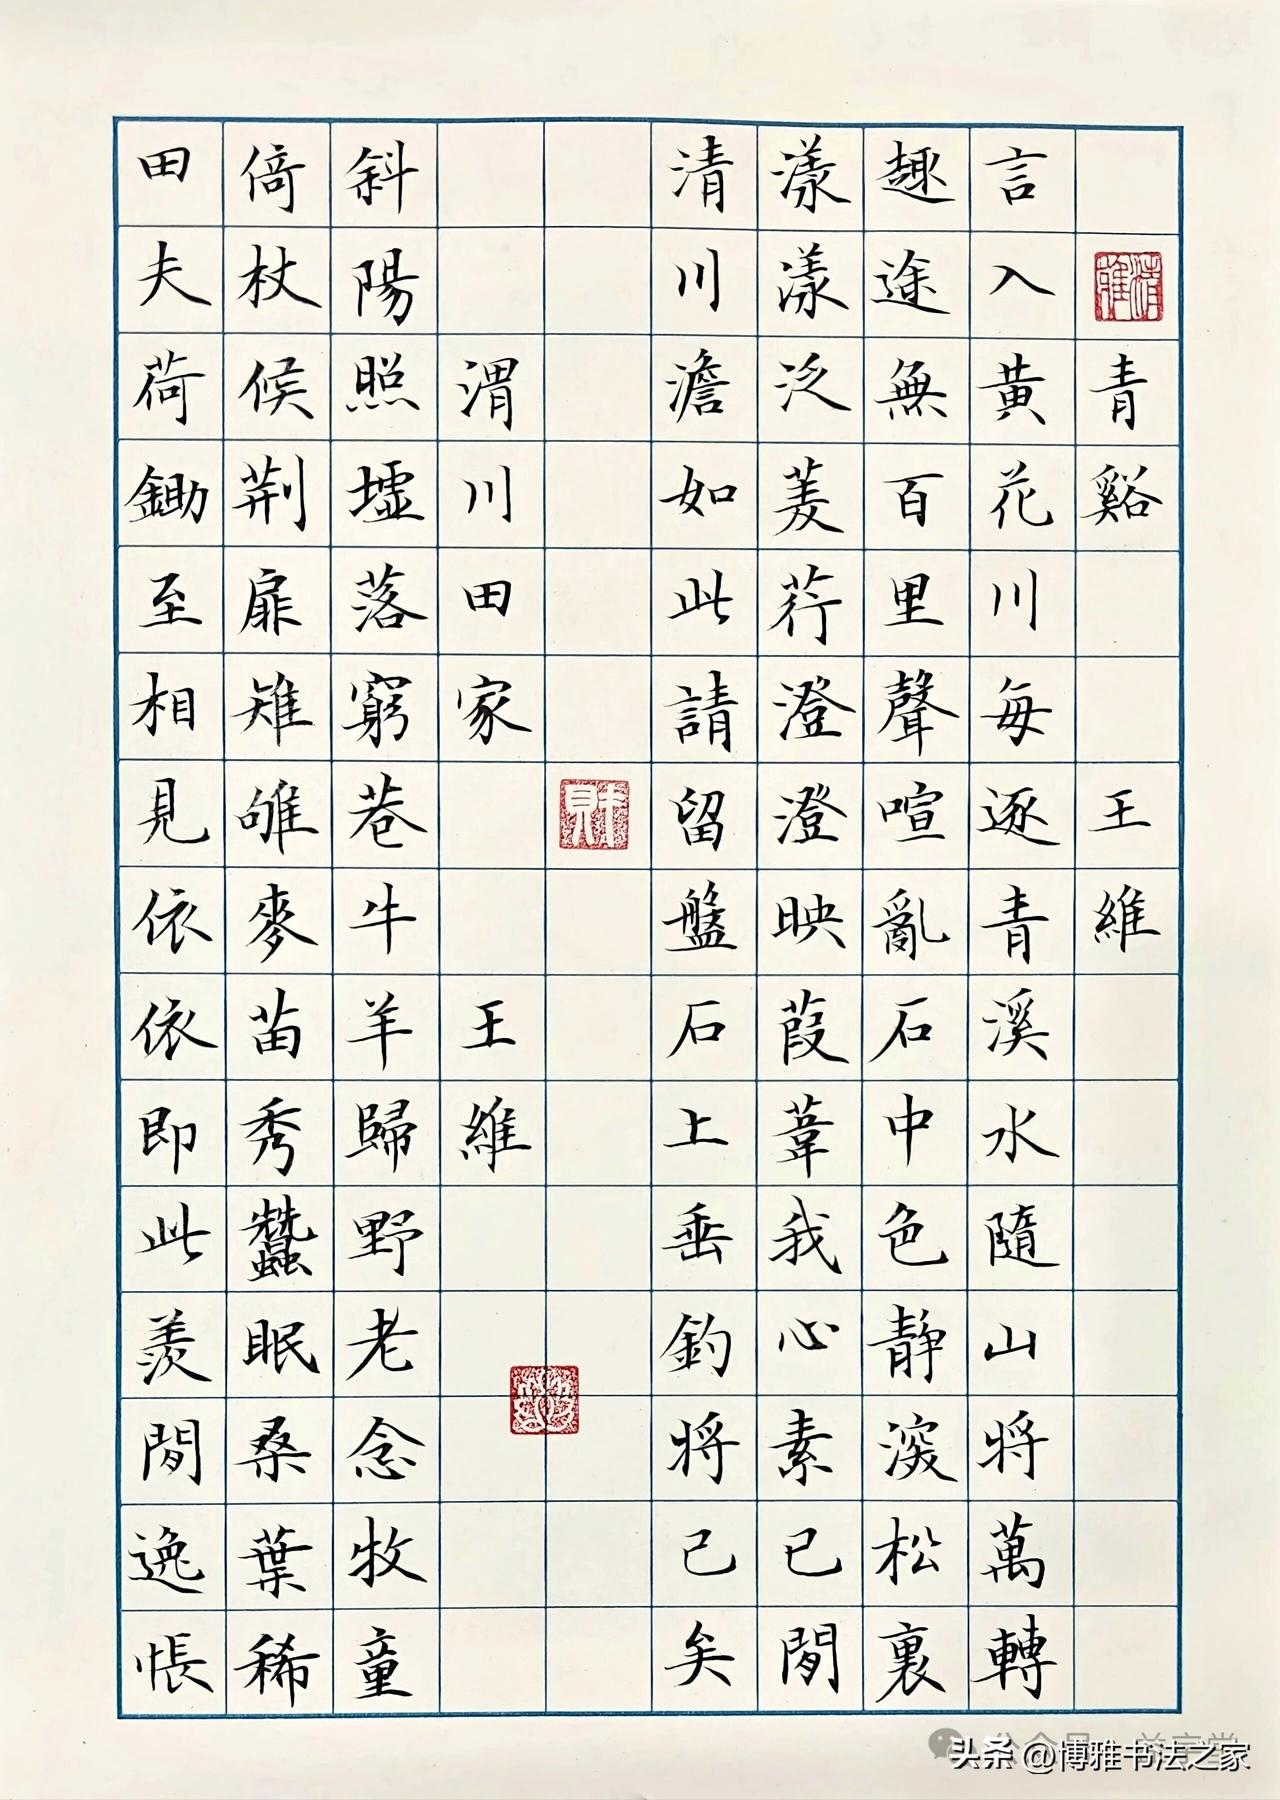 青谿 王維
言入黃花川每逐青溪水隨山將萬轉
趣途無百里聲喧亂石中色靜深松裏
漾漾泛菱荇澄澄映葭葦我心素已閒
清川澹如此請留盤石上垂釣將已矣
渭川田家 王維
斜陽照墟落窮巷牛羊歸野老念牧童
倚杖候荆扉雉雊麥苗秀蠶眠桑葉稀
田夫荷鋤至相見依依即此羨閒逸悵
头条 @博雅书法之家